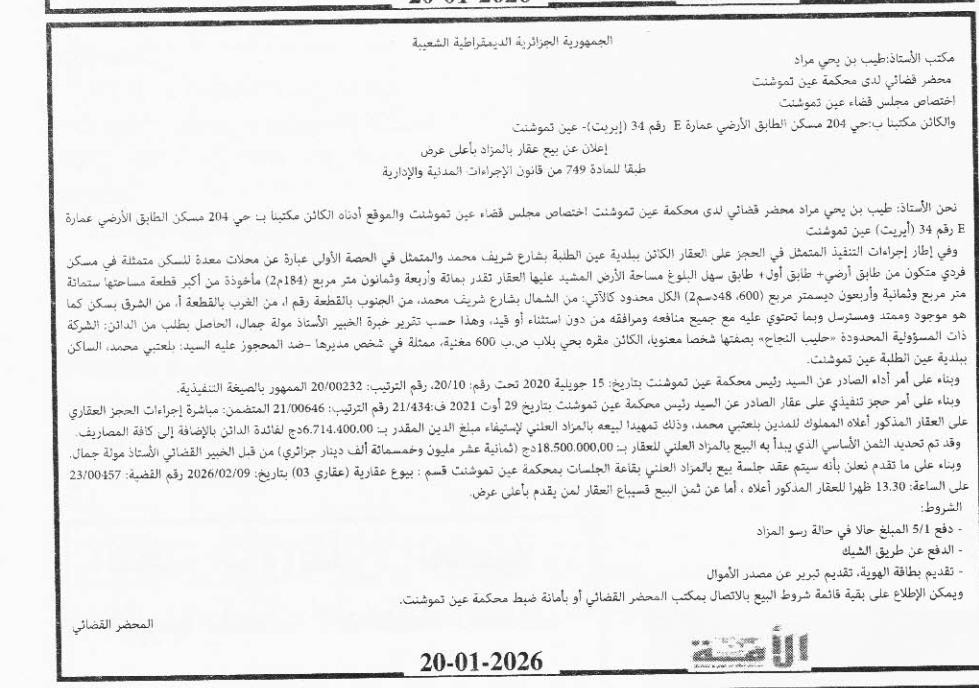 20-01-2026
الجمهورية الجزائرية الديمقراطية الشعبية
مكتب الأستاذ:طيب بن يحي مراد
محضر قضائي لدى محكمة عين تموشنت
إختصاص مجلس قضاء عين تموشنت
والكائن مكتبنا ب:حي 204 مسكن الطابق الأرضي عمارة E رقم 34 (إيريت)- عين تموشنت
إعلان عن بيع عقار بالمزاد بأعلى عرض
طبقا للمادة 749 من قانون الإجراءات المدنية والإدارية
نحن الأستاذ: طيب بن يحي مراد محضر قضائي لدى محكمة عين تموشنت اختصاص مجلس قضاء عين تموشنت والموقع أدناه الكائن مكتبنا بـ: حي 204 مسكن الطابق الأرضي عمارة
E رقم 34 (أيريت) عين تموشنت
وفي إطار إجراءات التنفيذ المتمثل في الحجز على العقار الكائن ببلدية عين الطلبة بشارع شريف محمد والمتمثل في الحصة الأولى عبارة عن محلات معدة للسكن متمثلة في مسكن
فردي متكون من طابق أرضي+ طابق أول+ طابق سهل البلوغ مساحة الأرض المشيد عليها العقار تقدر بمائة وأربعة وثمانون متر مربع (184م2) مأخوذة من أكبر قطعة مساحتها ستمائة
متر مربع وثمانية وأربعون ديسمتر مربع (600، 48دسم2) الكل محدود كالآتي: من الشمال بشارع شريف محمد، من الجنوب بالقطعة رقم ا، من الغرب بالقطعة أ، من الشرق بسكن كما
هو موجود وممتد ومسترسل وبما تحتوي عليه مع جميع منافعه ومرافقه من دون استثناء أو قيد، وهذا حسب تقرير خبرة الخبير الأستاذ مولة جمال، الحاصل بطلب من الدائن: الشركة
ذات المسؤولية المحدودة «حليب النجاح» بصفتها شخصا معنويا، الكائن مقره بحي بلاب ص.ب 600 مغنية، ممثلة في شخص مديرها –ضد المحجوز عليه السيد: بلعتبي محمد، الساكن
ببلدية عين الطلبة عين تموشنت.
وبناء على أمر أداء الصادر عن السيد رئيس محكمة عين تموشنت بتاريخ: 15 جويلية 2020 تحت رقم: 20/10، رقم الترتيب: 20/00232 الممهور بالصيغة التنفيذية.
وبناء على أمر حجز تنفيذي على عقار الصادر عن السيد رئيس محكمة عين تموشنت بتاريخ 29 أوت 2021 ف:21/434 رقم الترتيب: 21/00646 المتضمن: مباشرة إجراءات الحجز العقاري
على العقار المذكور أعلاه المملوك للمدين بلعتبي محمد، وذلك تمهيدا لبيعه بالمزاد العلني لإستيفاء مبلغ الدين المقدر بـ: 6.714.400.00دج لفائدة الدائن بالإضافة إلى كافة المصاريف.
وقد تم تحديد الثمن الأساسي الذي يبدأ به البيع بالمزاد العلني للعقار بـ: 18.500.000,00دج (ثمانية عشر مليون وخمسمائة ألف دينار جزائري) من قبل الخبير القضائي الأستاذ مولة جمال.
وبناء على ما تقدم نعلن بأنه سيتم عقد جلسة بيع بالمزاد العلني بقاعة الجلسات بمحكمة عين تموشنت قسم : بيوع عقارية (عقاري 03) بتاريخ: 2026/02/09 رقم القضية: 23/00457
على الساعة: 13.30 ظهرا للعقار المذكور أعلاه ، أما عن ثمن البيع فسيباع العقار لمن يقدم بأعلى عرض.
الشروط:
- دفع 5/1 المبلغ حالا في حالة رسو المزاد
- الدفع عن طريق الشيك
- تقديم بطاقة الهوية، تقديم تبرير عن مصدر الأموال
ويمكن الإطلاع على بقية قائمة شروط البيع بالاتصال بمكتب المحضر القضائي أو بأمانة ضبط محكمة عين تموشنت.
المحضر القضائي
الأمة
20-01-2026